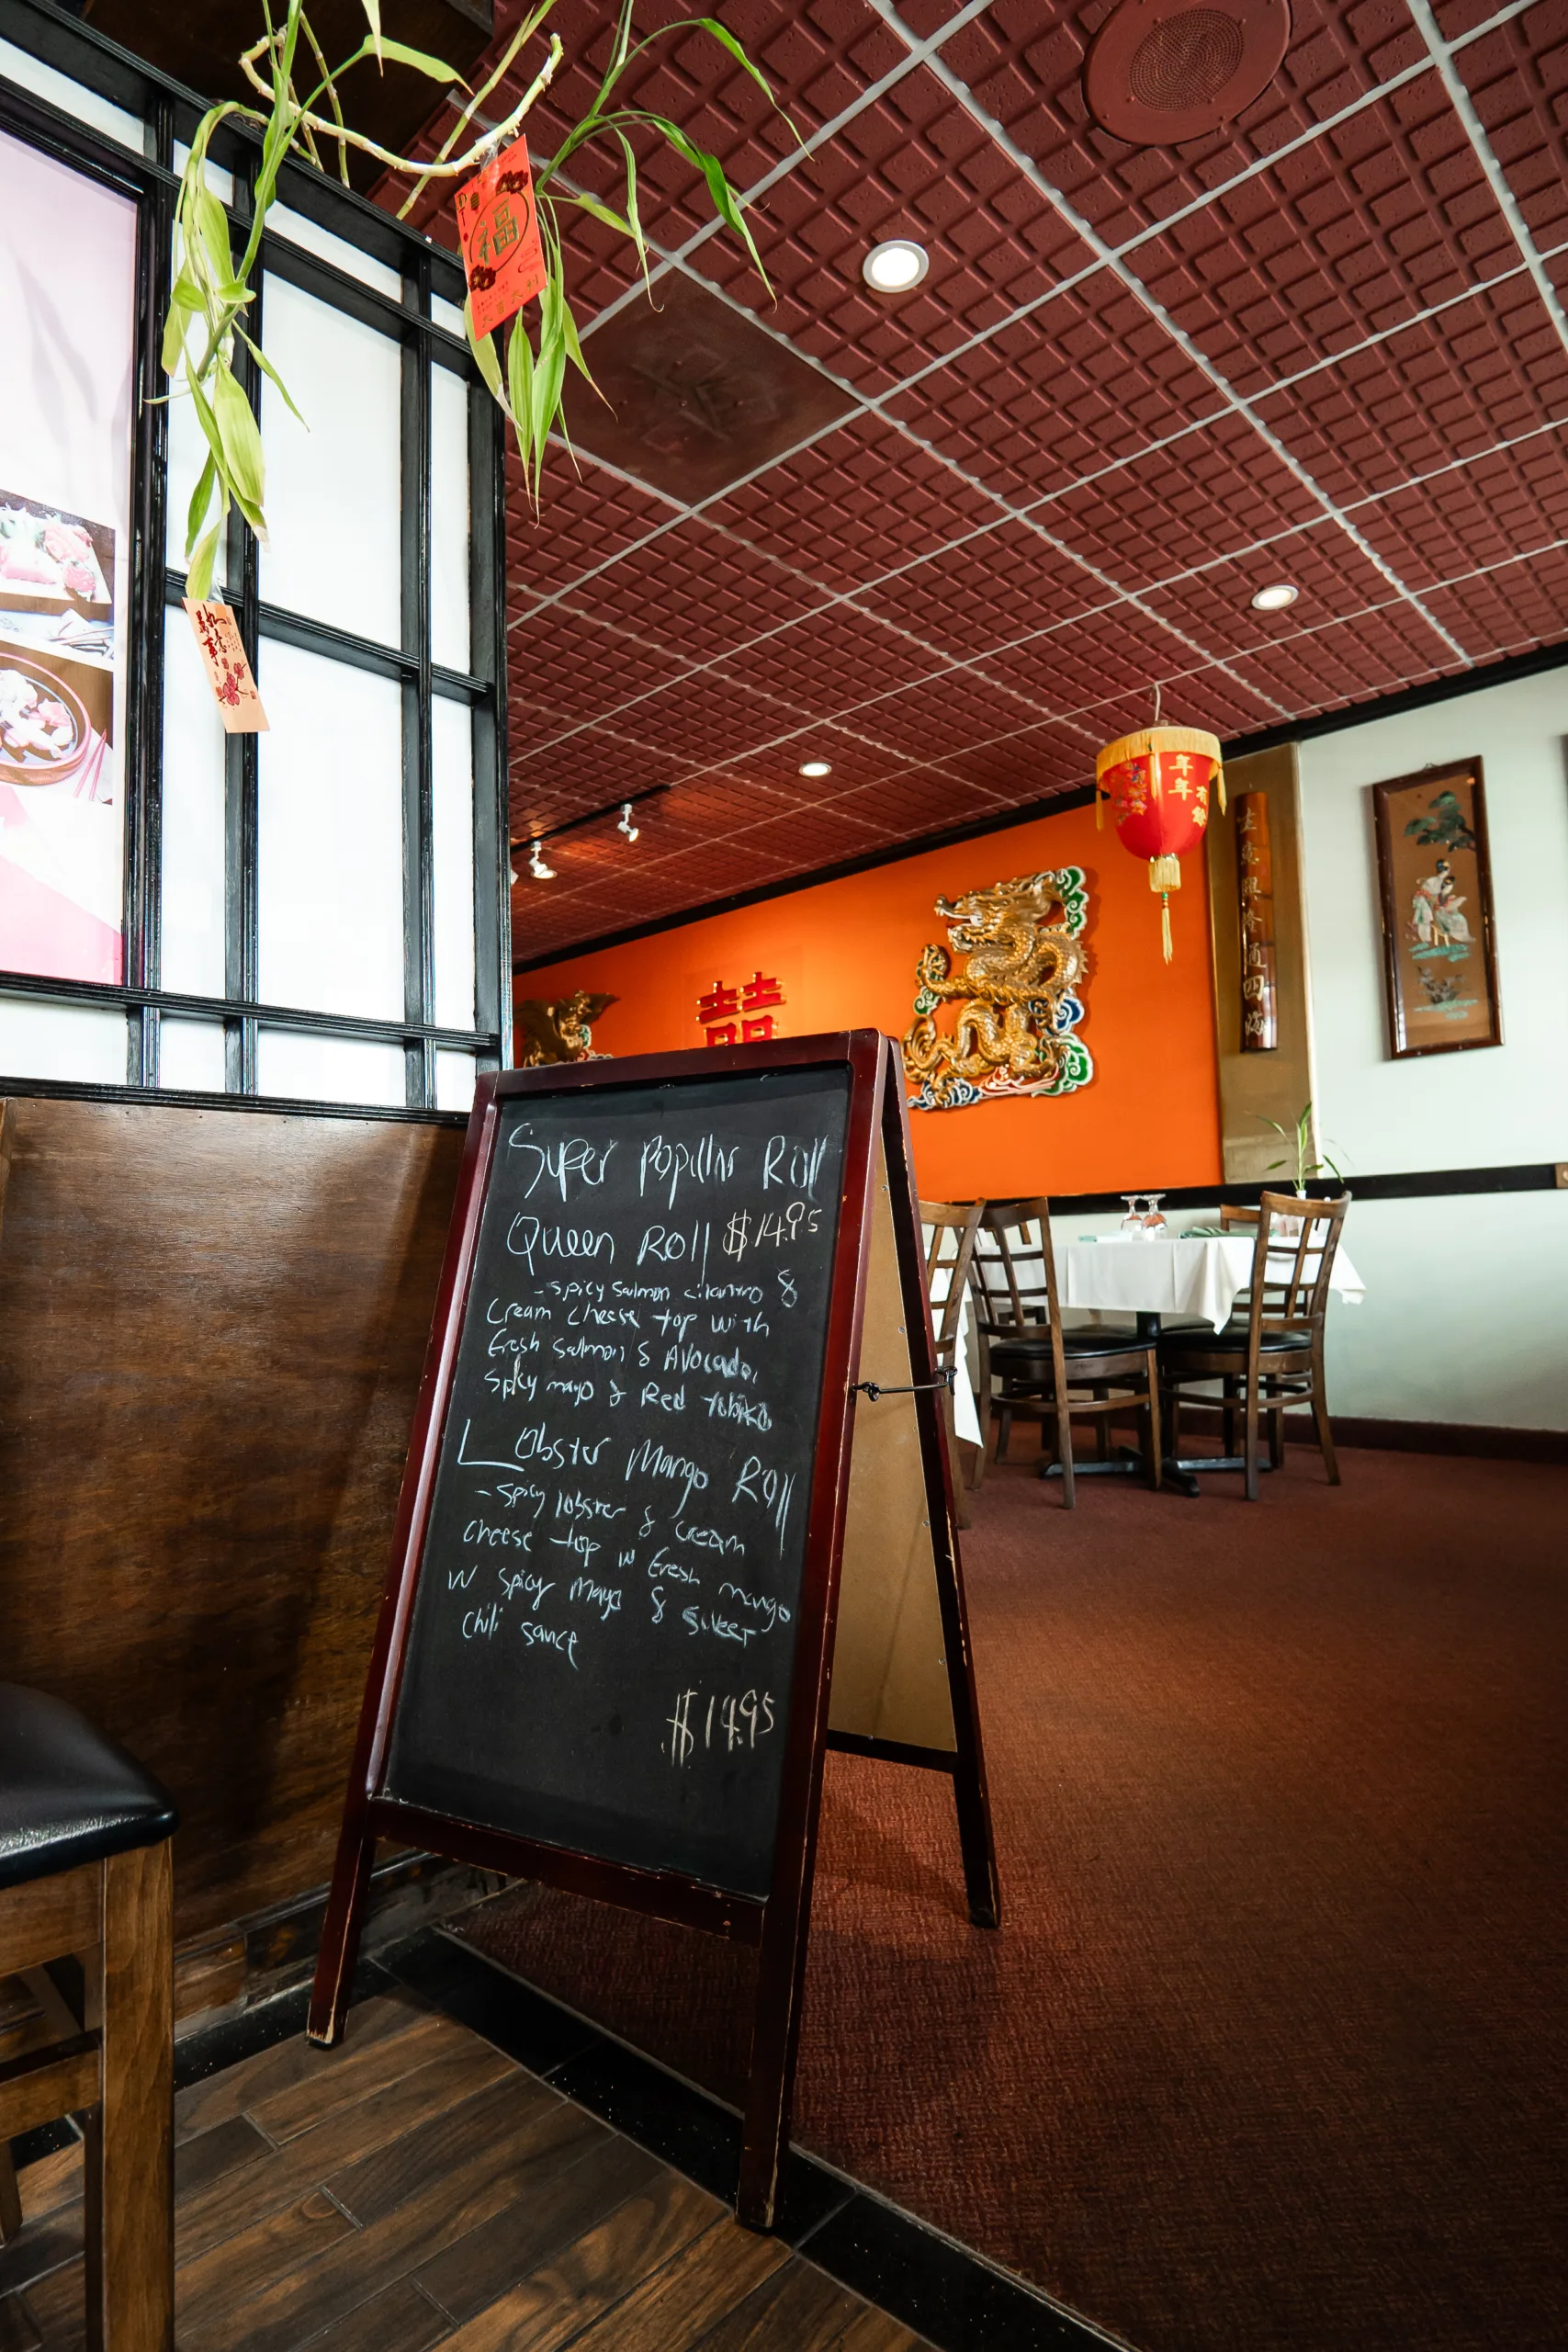 福
如意
萬事
年年
有餘
囍
Super Popular Roll
Queen Roll $14.95
-Spicy Salmon cilantro &
Cream cheese top with
Fresh Salmon & Avocado,
Spicy mayo & Red tobiko
Lobster Mango Roll
-Spicy lobster & cream
cheese top w Fresh mango
w spicy Mayo & Sweet
Chili sauce
$14.95